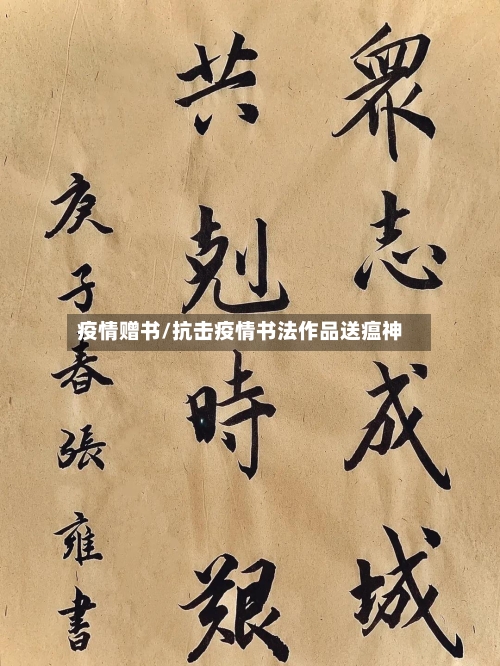 眾志成城
共剋時艱
庚子春張雍書
疫情赠书/抗击疫情书法作品送瘟神